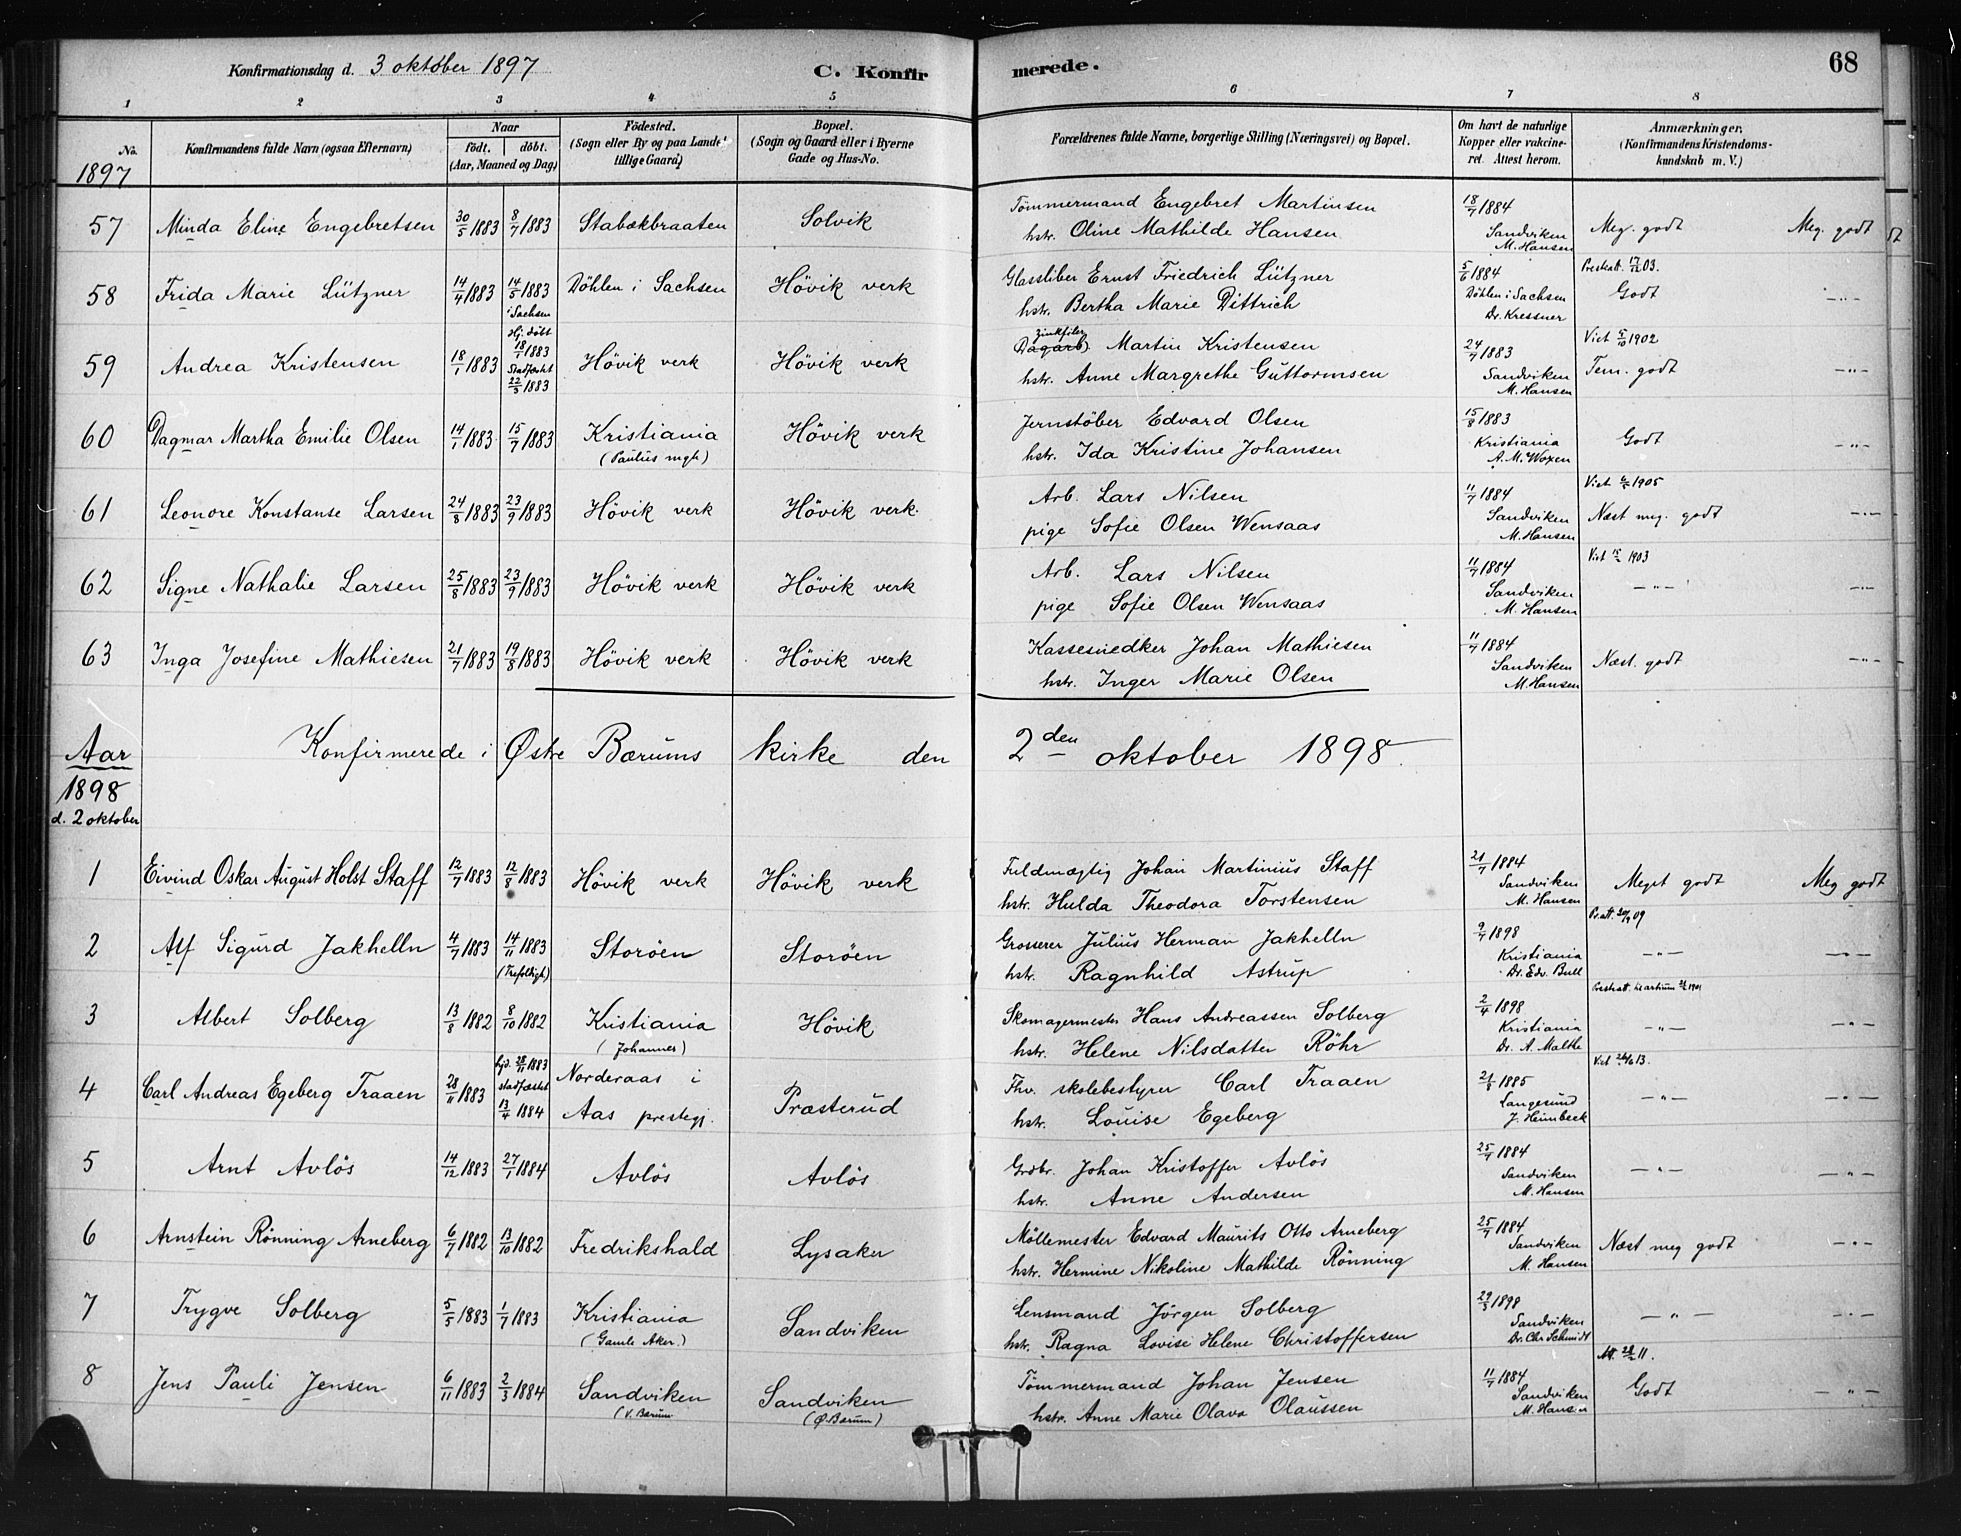 Konfirmationsdag d. 3 oktober 1897 C. Konfir merede. 68
1 2 3 4 5 6 7 8
No. Konfirmandens fulde Navn (ogsaa Efternavn) Naar födt. döbt. (Aar, Maaned og Dag) Födested. (Sogn eller By og paa Landet tillige Gaard) Bopæl. (Sogn og Gaard eller i Byerne Gade og Hus-No. Forældrenes fulde Navne, borgerlige Stilling (Næringsvei) og Bopæl. Om havt de naturlige Kopper eller vakcineret. Attest herom. Anmærkninger. (Konfirmandens Kristendomskundskab m. V.)
1897
57 Minda Eline Engebretsen 30/5 1883 8/7 1883 Stabækbraaten Solvik Tömmermand Engebret Martinsen 18/7 1884 Meg. godt Meg. godt
hstr. Oline Mathilde Hansen Sandviken M. Hansen
58 Frida Marie Lützner 14/4 1883 14/5 1883 i Sachsen Döhlen i Sachsen Hövik verk Glassliber Ernst Friedrich Lützner 5/6 1884 Prestatt. 17/12 03. Godt -"-
hstr. Bertha Marie Dittrich Döhlen i Sachsen Dr. Kressner
59 Andrea Kristensen 18/1 1883 Hj. döbt 18/1 1883 Stadfæstet 22/3 1883 Hövik verk Hövik verk Dagarb. zinkfiler Martin Kristensen 24/7 1883 Viet 1902 Tem. godt -"-
hstr. Anne Margrethe Guttormsen Sandviken M. Hansen
60 Dagmar Martha Emilie Olsen 14/1 1883 15/7 1883 Kristiania Hövik verk Jernstöber Edvard Olsen 15/8 1883 Godt -"-
(Paulus mgh) hstr. Ida Kristine Johansen Kristiania A. M. Woxen
61 Leonore Konstanse Larsen 24/8 1883 23/9 1883 Hövik verk Hövik verk. Arb. Lars Nilsen 11/7 1884 Viet 1905 Næst meg. godt -"-
pige Sofie Olsen Wensaas Sandviken M. Hansen
62 Signe Nathalie Larsen 25/8 1883 23/9 1883 Hövik verk Hövik verk Arb. Lars Nilsen 11/7 1884 Viet 1903 -"- -"-
pige Sofie Olsen Wensaas Sandviken M. Hansen
63 Inga Josefine Mathiesen 21/7 1883 19/8 1883 Hövik verk Hövik verk Kassesnedker Johan Mathiesen 11/7 1884 Næst. godt -"-
hstr. Inger Marie Olsen Sandviken M. Hansen
Aar 1898 d. 2 oktober
Konfirmerede i Østre Bærums kirke den 2den oktober 1898.
1 Eivind Oskar August Holst Staff 12/7 1883 12/8 1883 Hövik verk Hövik verk Fuldmægtig Johan Martinius Staff 21/7 1884 Meget godt Meg godt
hstr. Hulda Theodora Torstensen Sandviken M. Hansen
2 Alf Sigurd Jakhelln 4/7 1883 14/11 1883 Storöen Storöen Grosserer Julius Herman Jakhelln 9/7 1898 -"- -"-
(Trefoldigh) hstr. Ragnhild Astrup Kristiania Dr. Edv. Bull
3 Albert Solberg 13/8 1882 8/10 1882 Kristiania Hövik Skomagermester Hans Andreassen Solberg 2/4 1898 -"- -"-
(Johannes) hstr. Helene Nilsdatter Röhr Kristiania Dr. A. Malthe
4 Carl Andreas Egeberg Traaen 28/11 1883 hjd. 28/11 1883 stadfæstet 13/4 1884 Norderaas i Aas prestegj. Præsterud Fhv. skolebestyrer Carl Traaen 21/8 1885 -"- -"-
hstr. Louise Egeberg Langesund J. Heimbeck
5 Arnt Avlös 14/12 1883 27/1 1884 Avlös Avlös Grdbr. Johan Kristoffer Avlös 25/7 1884 -"- -"-
hstr. Anne Andersen Sandviken M. Hansen
6 Arnstein Rönning Arneberg 6/7 1882 13/10 1882 Fredrikshald Lysaker Möllemester Edvard Maurits Otto Arneberg 25/7 1884 Næst meg godt -"-
hstr. Hermine Nikoline Mathilde Rönning Sandviken M. Hansen
7 Trygve Solberg 5/5 1883 1/7 1883 Kristiania Sandviken Lensmand Jörgen Solberg 29/3 1898 -"- -"-
(Gamle Aker.) hstr. Ragna Lovise Helene Christoffersen Sandviken Dr. Chr Schmidt
8 Jens Pauli Jensen 6/11 1883 2/3 1884 Sandviken Sandviken Tömmermand Johan Jensen 11/7 1884 Godt -"-
(V. Bærum) (Ø. Bærum) hstr. Anne Marie Olava Olaussen Sandviken M. Hansen